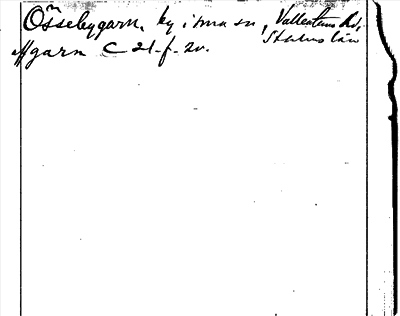 Össebygarn, ky i sma sn, Vallentuna hd,
Stholms län
Garn C 21-f-20.